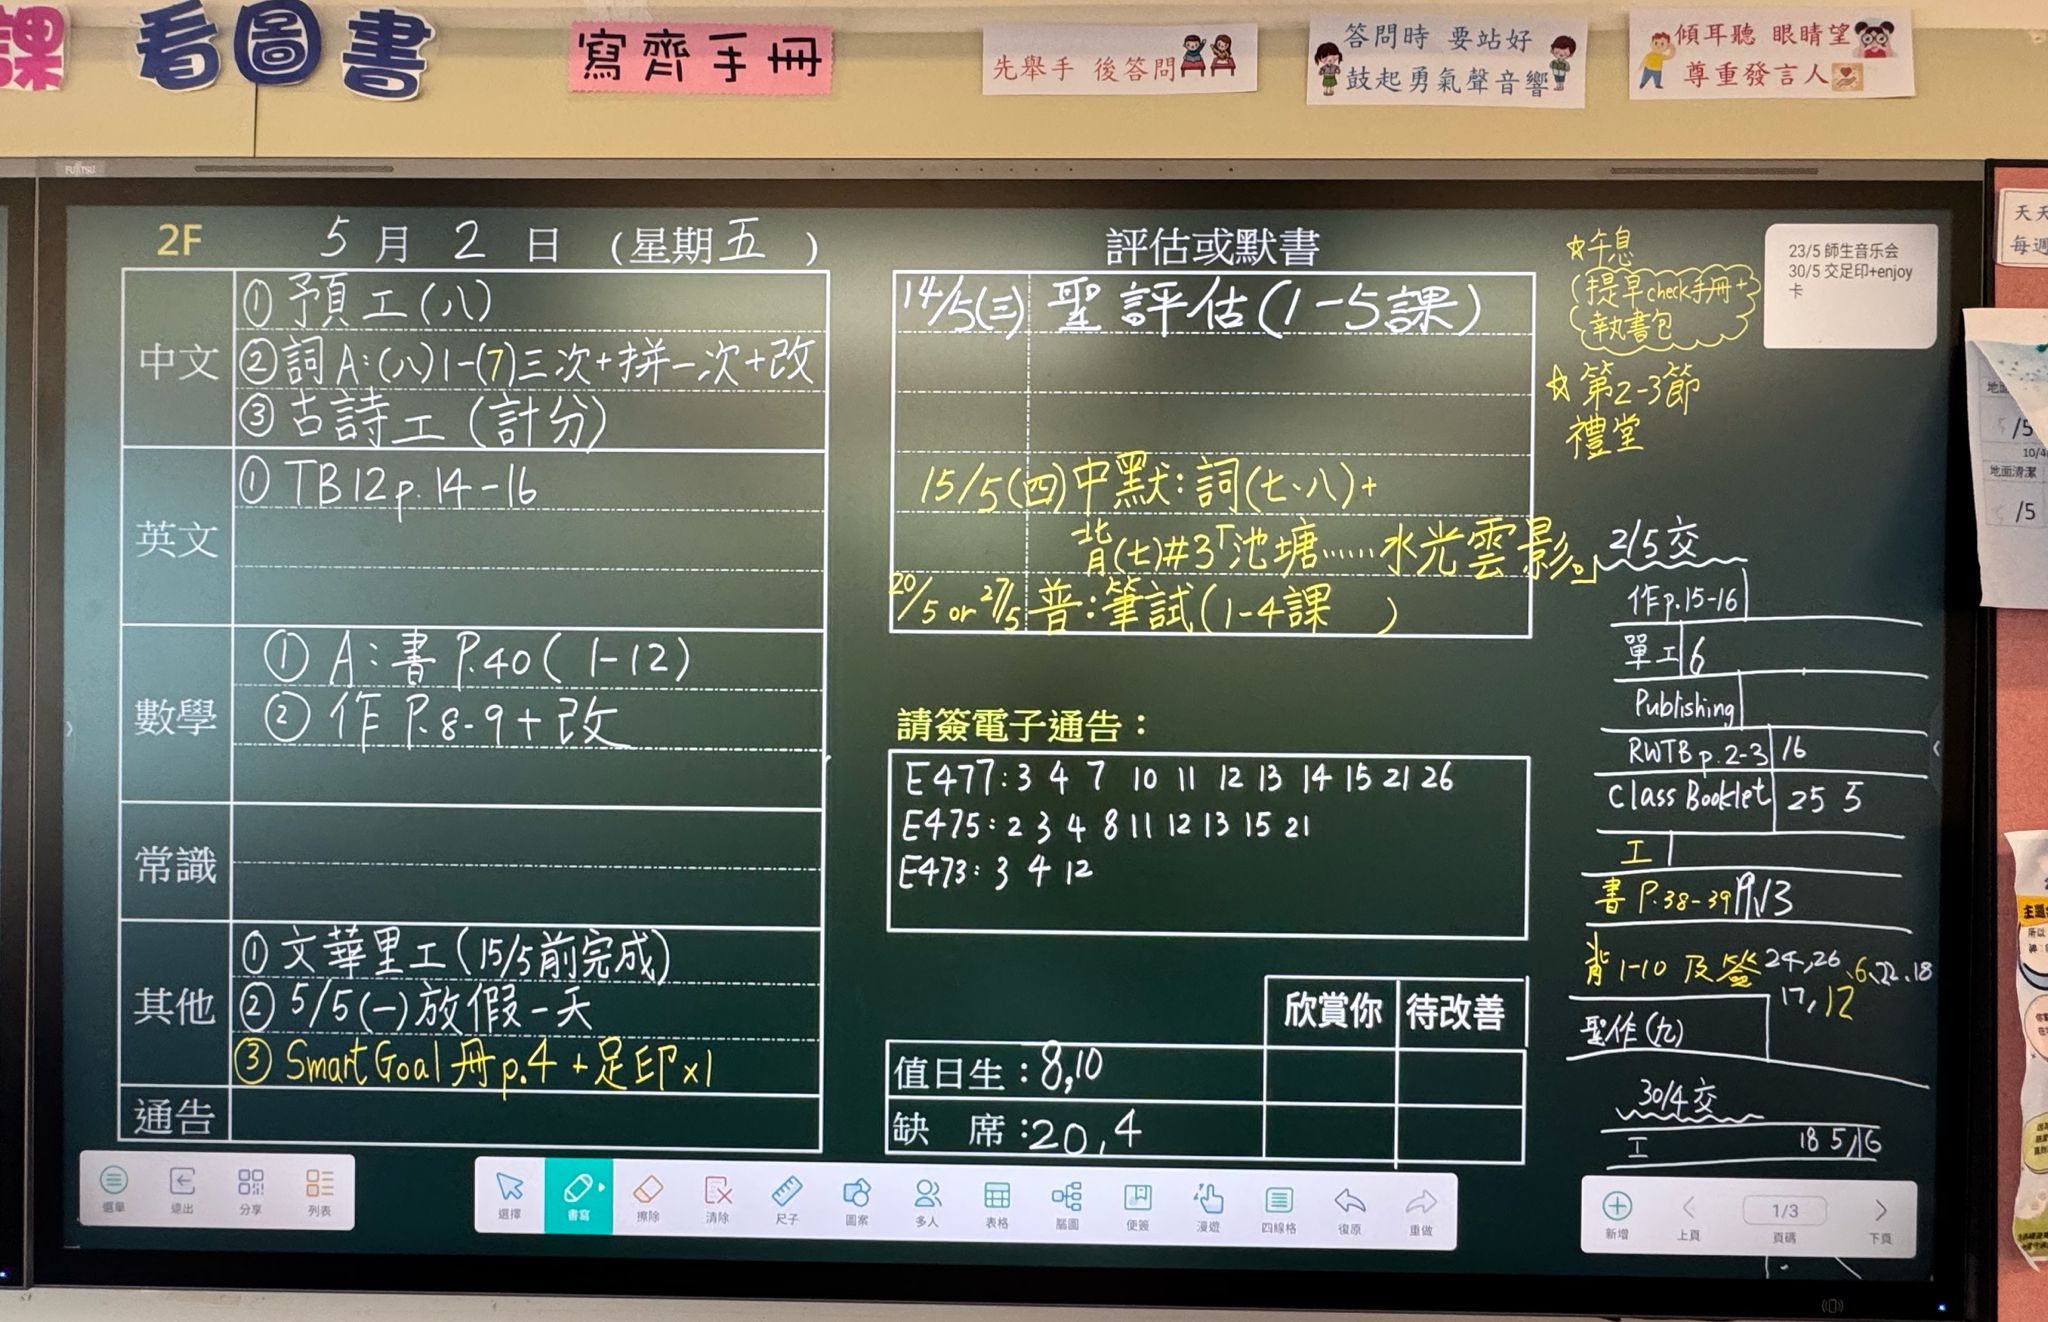 課 看圖書
寫齊手冊
先舉手 後答問
答問時 要站好
鼓起勇氣聲音響
傾耳聽 眼睛望
尊重發言人
FUJITSU
2F 5月2日 (星期五)
中文
① 預工(八)
② 詞A:(八)1-(7)三次+拼一次+改
③ 古詩工(計分)
英文
① TB12 p.14-16
數學
① A:書 P.40(1-12)
② 作 P.8-9+改
常識
其他
① 文華里工(15/5前完成)
② 5/5(一)放假一天
③ Smart Goal 冊 p.4 +足印×1
通告
評估或默書
14/5(三) 聖評估(1-5課)
15/5(四)中默:詞(七、八)+
背(七)#3「池塘……水光雲影。」
20/5 or 27/5 普:筆試(1-4課 )
請簽電子通告:
E477:3 4 7 10 11 12 13 14 15 21 26
E475:2 3 4 8 11 12 13 15 21
E473:3 4 12
欣賞你 待改善
值日生:8,10
缺 席:20,4
☆午息
提早check手冊+
執書包
☆第2-3節
禮堂
23/5 師生音乐会
30/5 交足印+enjoy
卡
2/5交
作p.15-16
單工 6
Publishing
RWTB p.2-3 16
Class Booklet 25 5
工
書 P.38-39 9,13
背1-10 及簽 24,26、6、22、18
17,12
聖作(九)
30/4交
工 18 5,16
選單 退出 分享 列表
選擇 書寫 擦除 清除 尺子 圖案 多人 表格 腦圖 便簽 漫遊 四線格 復原 重做
新增 上頁 1/3 頁碼 下頁
天天
每週
/5
10/4
地面清潔
/5